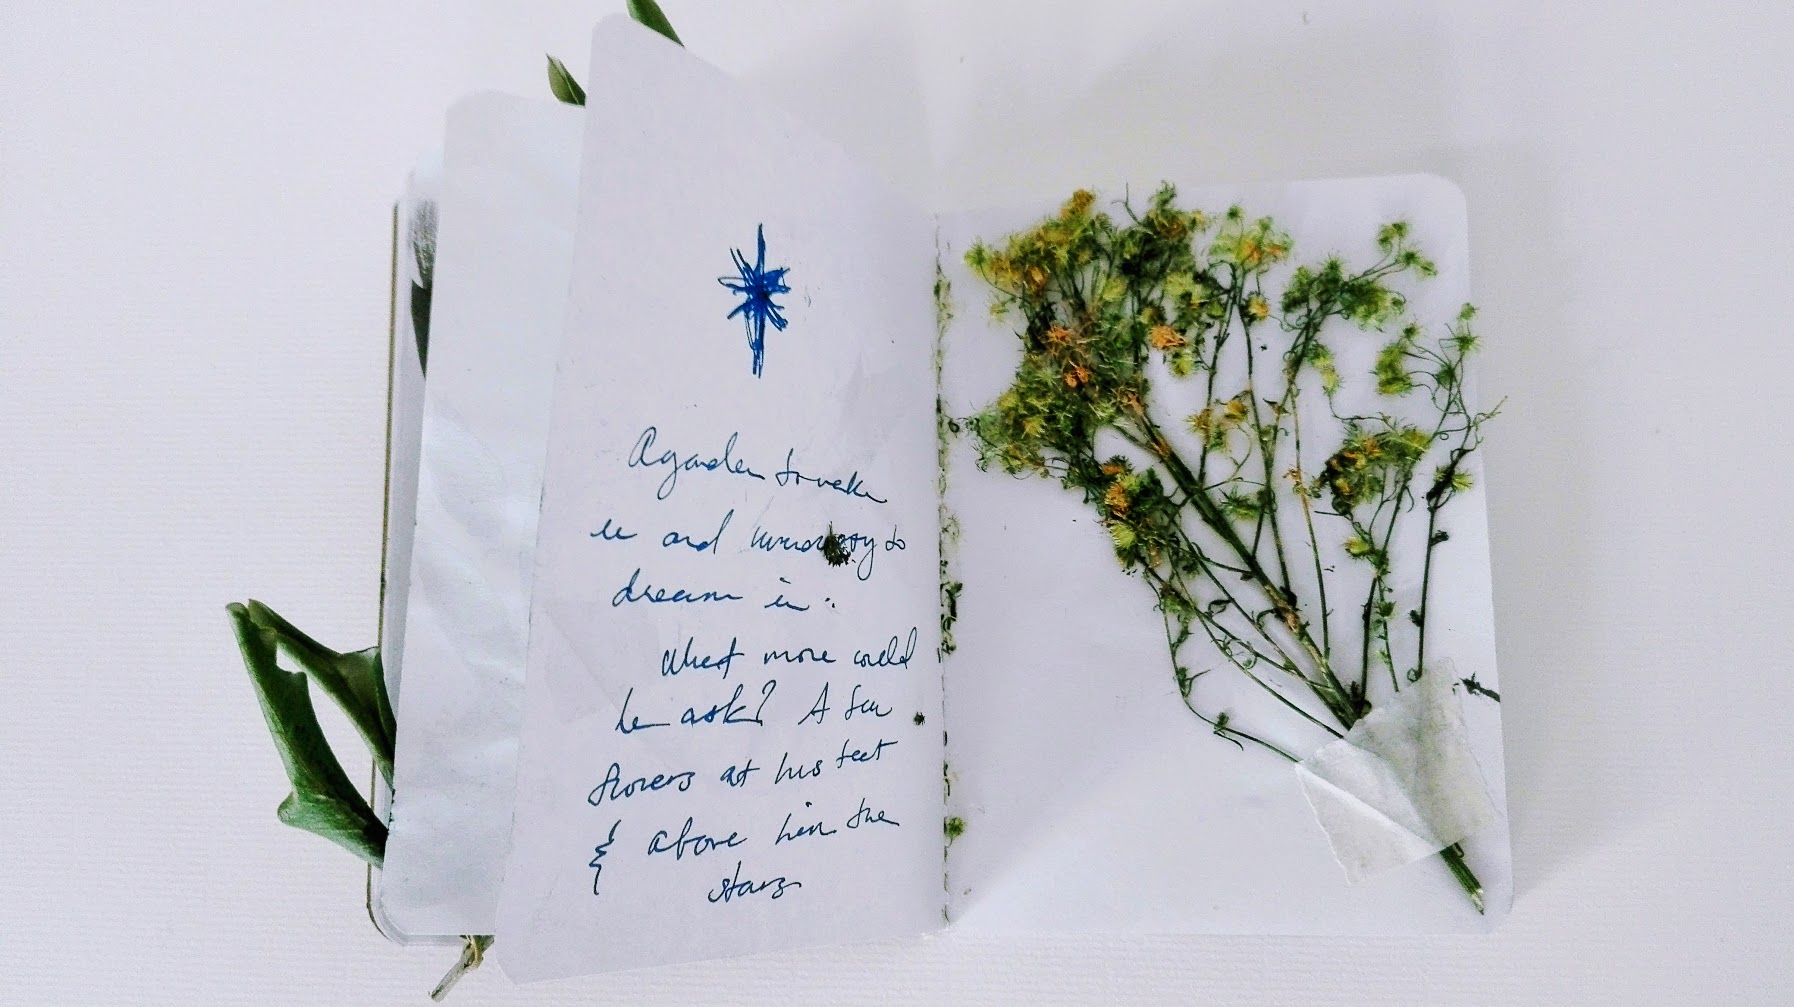 A garden to walk
in and immensity to
dream in :
What more could
he ask? A few
flowers at his feet
& above him the
stars